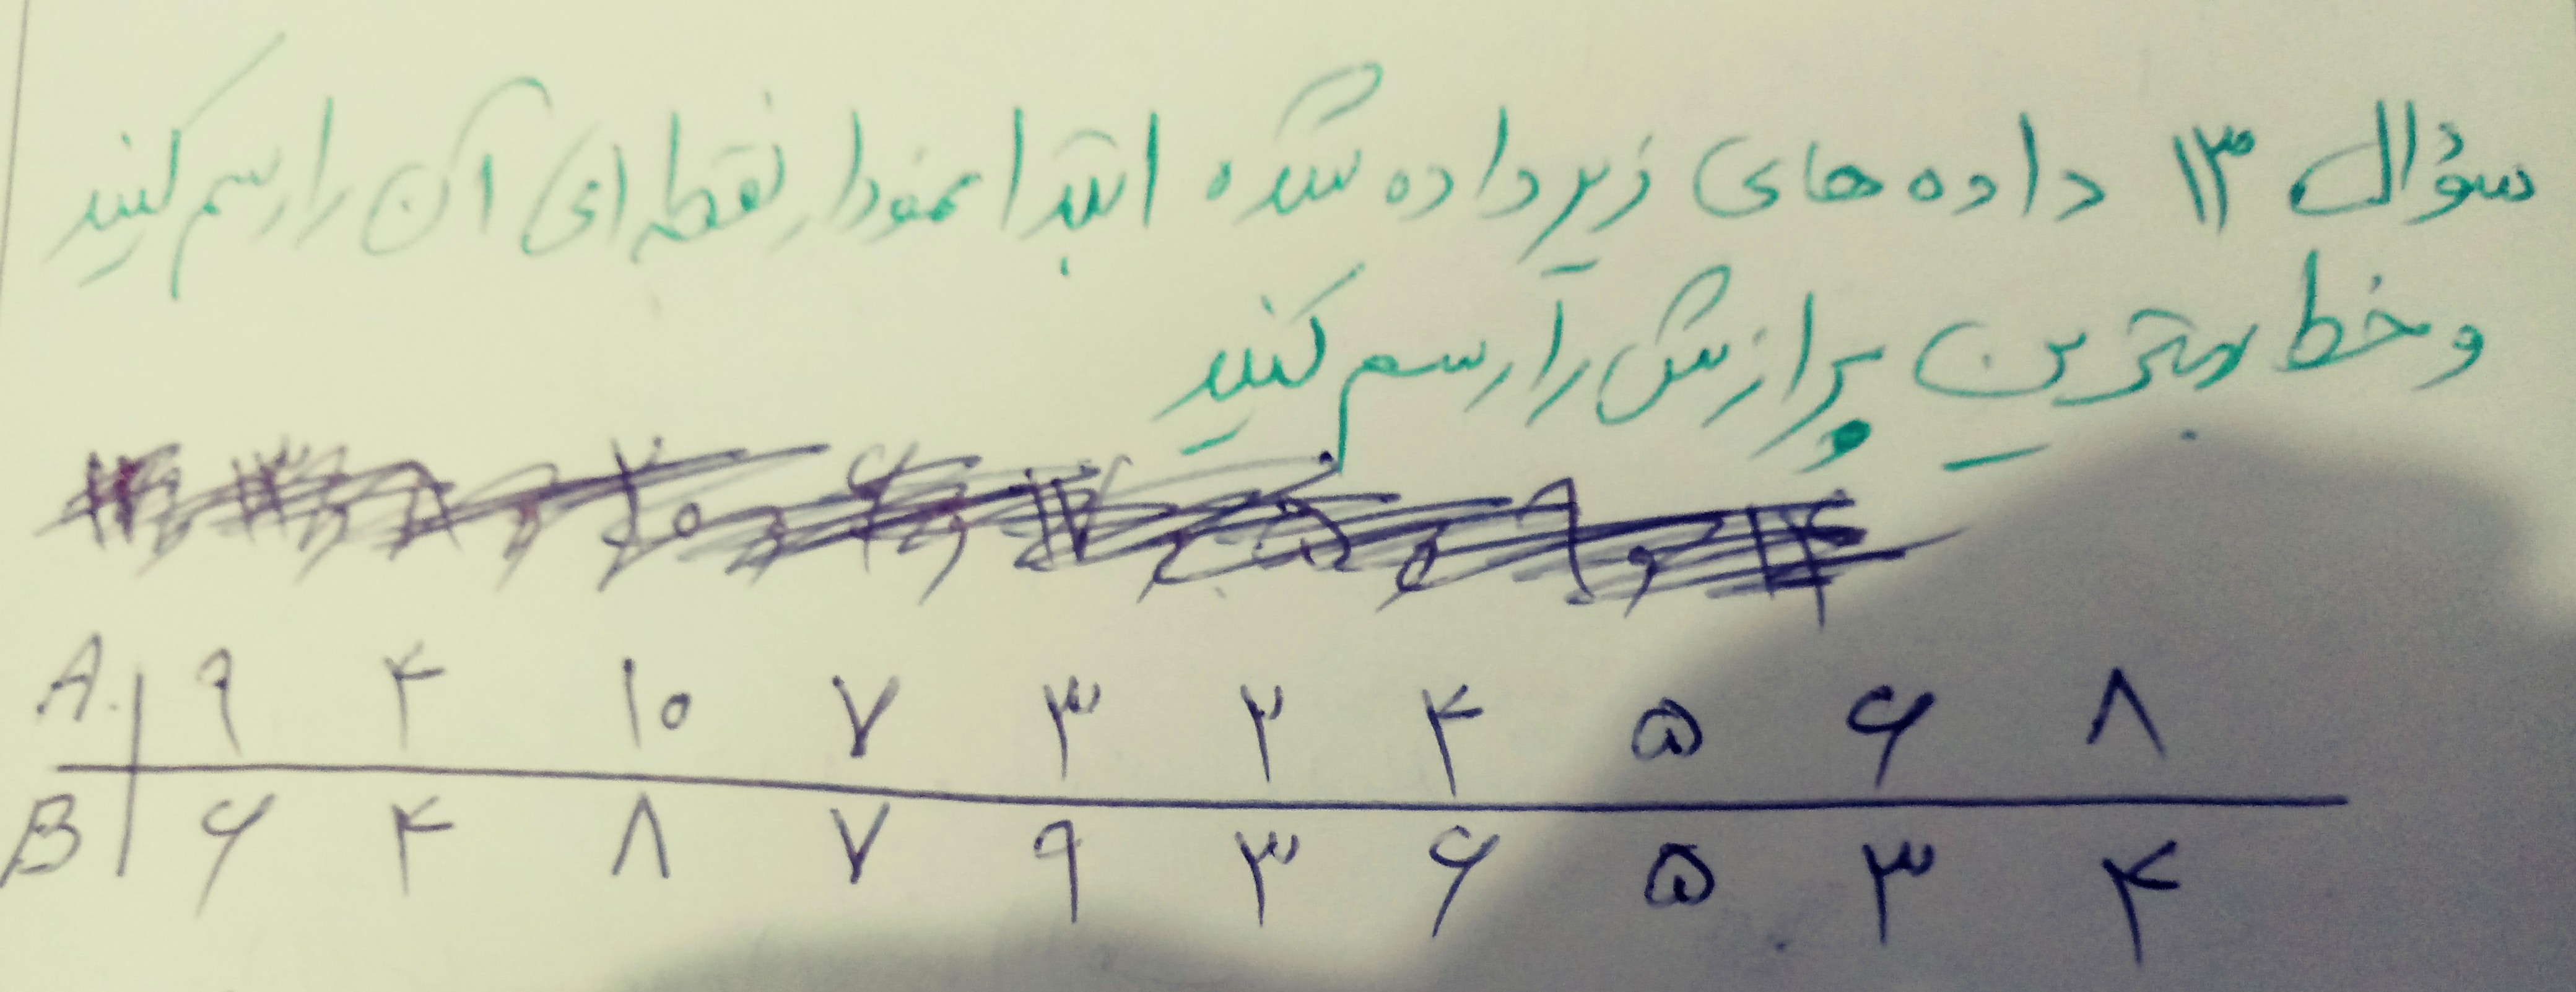 سؤال ۱۳ داده های زیر داده شده ابتدا نمودار نقطه ای آن را رسم کنید
و خط بهترین برازش را رسم کنید
A ۹ ۴ ۱۰ ۷ ۳ ۲ ۴ ۵ ۶ ۸
B ۶ ۴ ۸ ۷ ۹ ۳ ۶ ۵ ۳ ۴